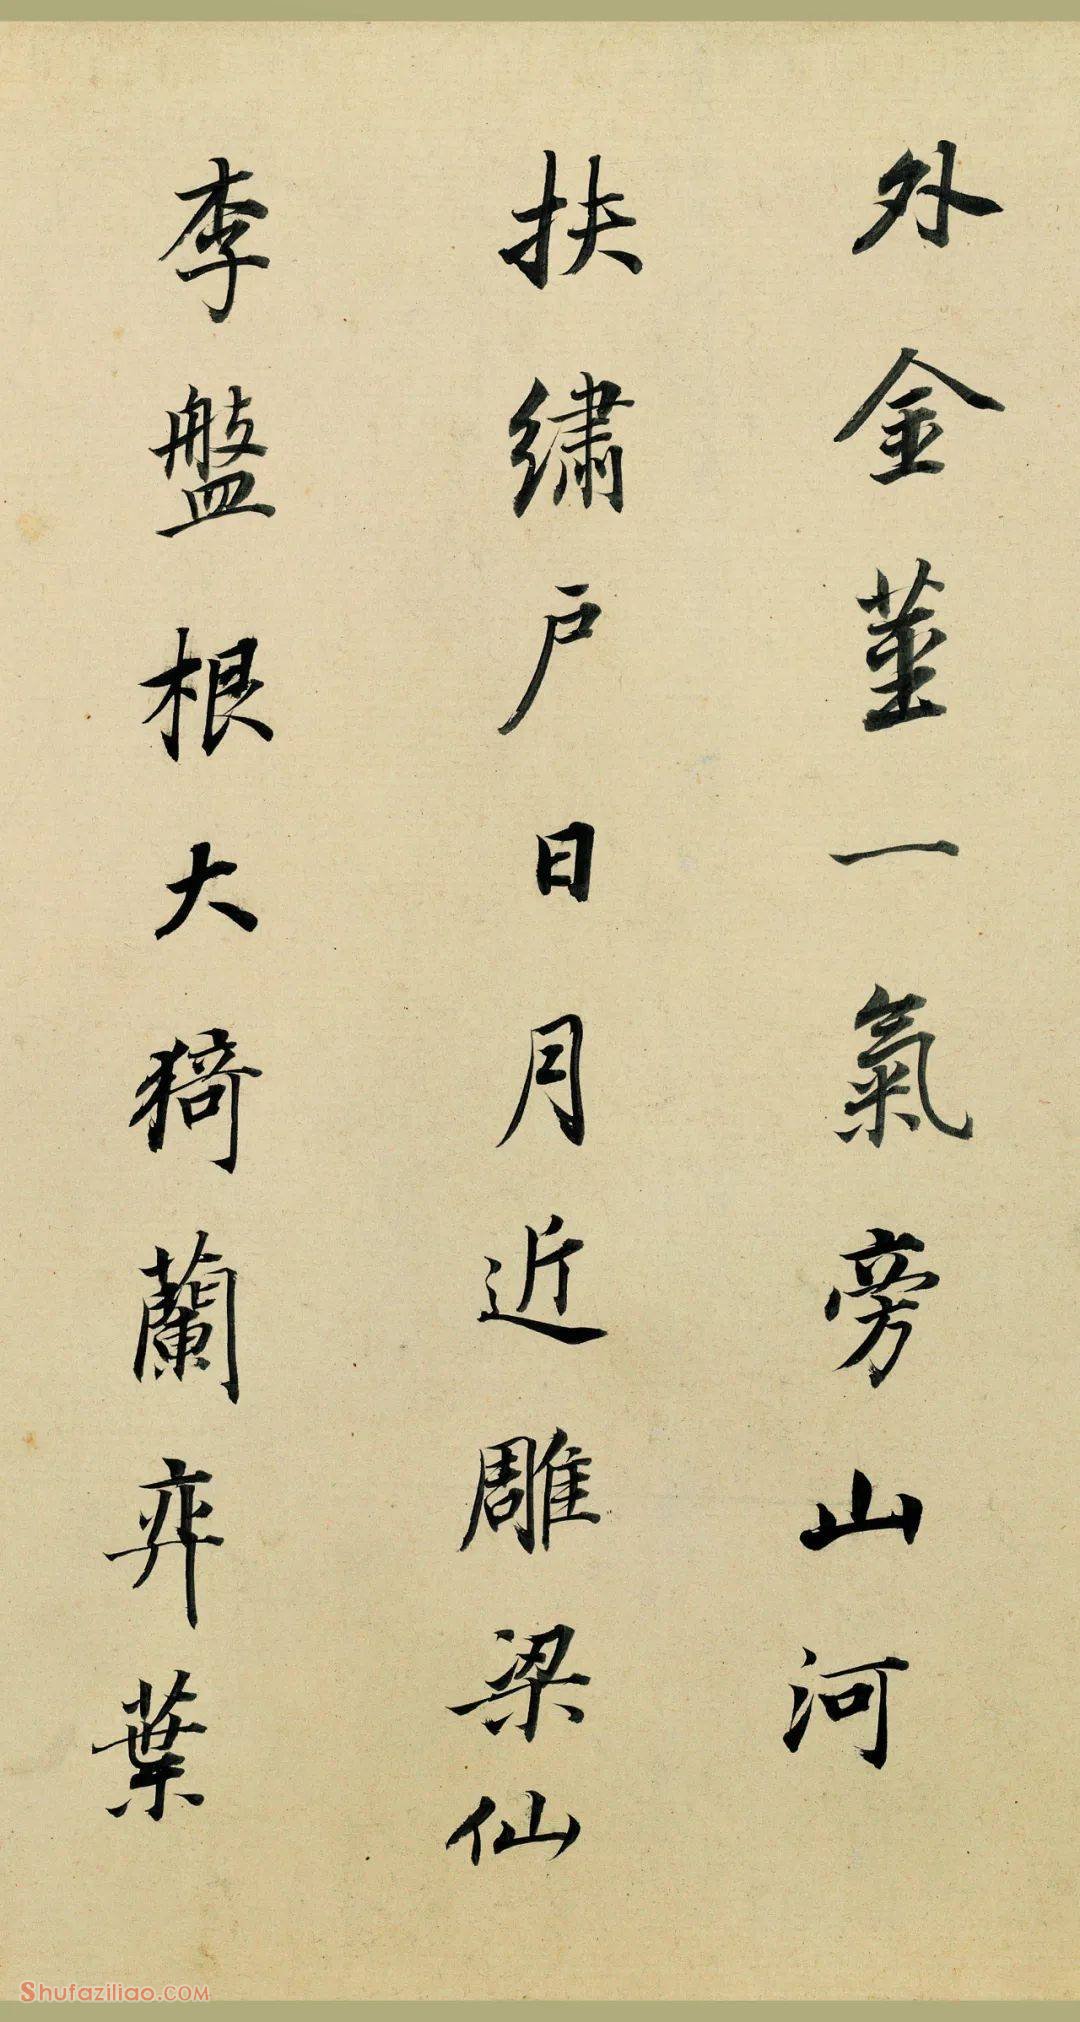 外金莖一氣旁山河
扶繡户日月近雕梁仙
李盤根大猗蘭弈葉
Shufaziliao.COM